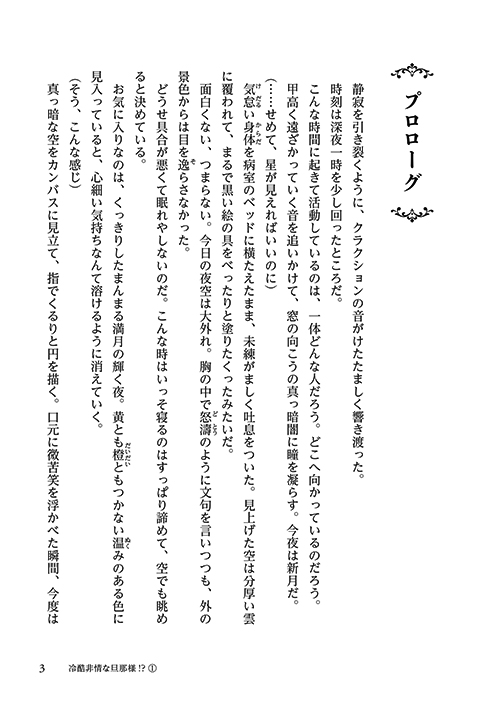 プロローグ
静寂を引き裂くように、クラクションの音がけたたましく響き渡った。
時刻は深夜一時を少し回ったところだ。
こんな時間に起きて活動しているのは、一体どんな人だろう。どこへ向かっているのだろう。
甲高く遠ざかっていく音を追いかけて、窓の向こうの真っ暗闇に瞳を凝らす。今夜は新月だ。
（……せめて、星が見えればいいのに）
気怠い身体を病室のベッドに横たえたまま、未練がましく吐息をついた。見上げた空は分厚い雲
に覆われて、まるで黒い絵の具をべったりと塗りたくったみたいだ。
面白くない、つまらない。今日の夜空は大外れ。胸の中で怒濤のように文句を言いつつも、外の
景色からは目を逸らさなかった。
どうせ具合が悪くて眠れやしないのだ。こんな時はいっそ寝るのはすっぱり諦めて、空でも眺め
ると決めている。
お気に入りなのは、くっきりしたまんまる満月の輝く夜。黄とも橙ともつかない温みのある色に
見入っていると、心細い気持ちなんて溶けるように消えていく。
（そう、こんな感じ）
真っ暗な空をカンバスに見立て、指でくるりと円を描く。口元に微苦笑を浮かべた瞬間、今度は
3 冷酷非情な旦那様!?①